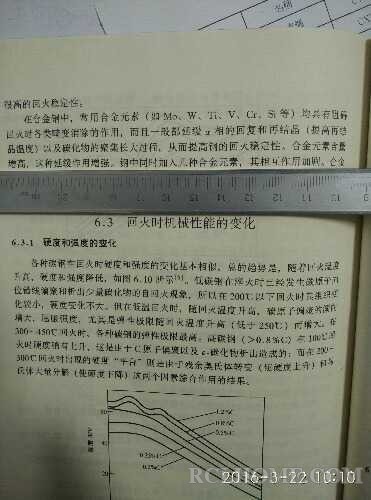 名称
很高的回火稳定性。
在合金钢中，常用合金元素（如 Mo、W、Ti、V、Cr、Si 等）均具有阻碍
回火时各类畸变消除的作用，而且一般都延缓 α 相的回复和再结晶（提高再结
晶温度）以及碳化物的聚集长大过程，从而提高钢的回火稳定性。合金元素含量
增高，这种延缓作用增强。钢中同时加入几种合金元素，其相互作用加剧。合金
9 10 11 12 13 14 15 16 17 18
6.3 回火时机械性能的变化
6.3.1 硬度和强度的变化
各种碳钢在回火时硬度和强度的变化基本相似，总的趋势是，随着回火温度
升高，硬度和强度降低，如图 6.10 所示。低碳钢在淬火时已经发生碳原子向
位错线偏聚和析出少量碳化物的自回火现象，所以在 200℃以下回火时其组织变
化较小，硬度变化不大。但在低温回火时，随回火温度升高，碳原子偏聚的
增大，屈服强度，尤其是弹性极限随回火温度升高（低于 250℃）而增大。在
300~450℃回火时，各种碳钢的弹性极限最高。高碳钢（＞0.8%C）在 100℃回
火时硬度稍有上升，这是由于 C 原子偏聚以及 ε-碳化物析出造成的；而在 200~
300℃回火时出现的硬度“平台”则是由于残余奥氏体转变（使硬度上升）和马
氏体大量分解（使硬度下降）这两个因素综合作用的结果。
60
1.2%C
0.8%C
2016-3-22 10:10